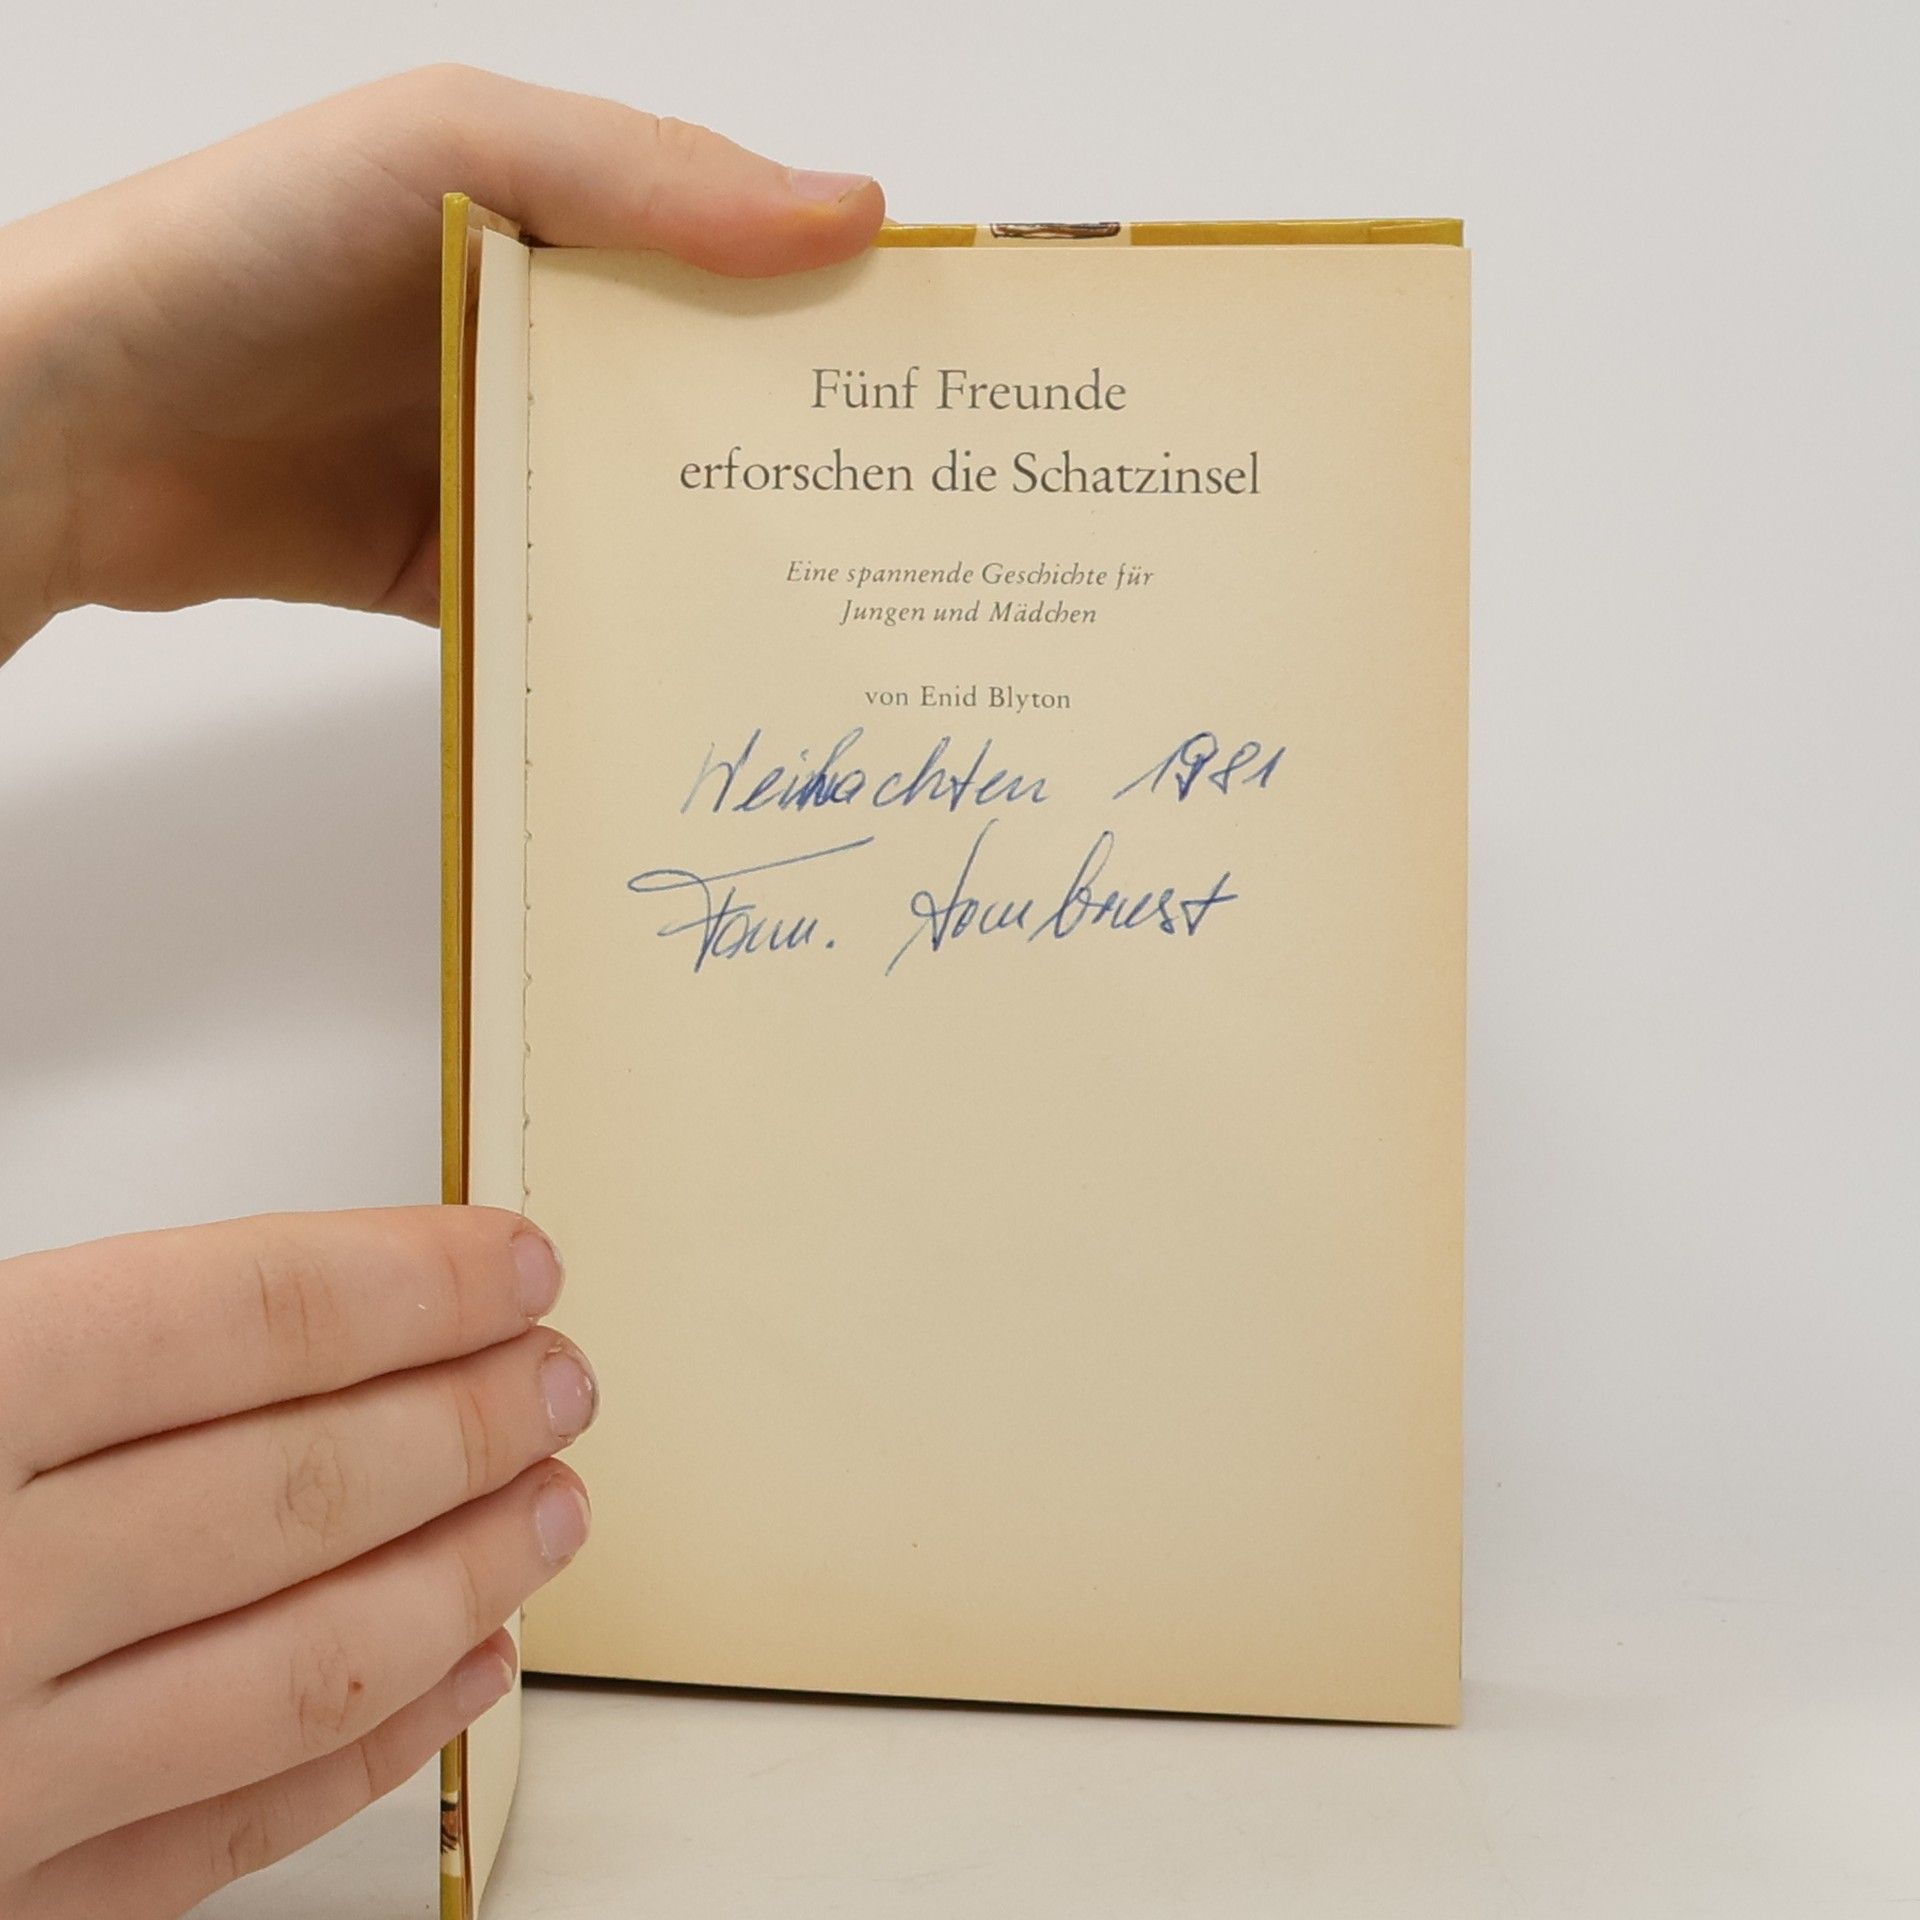 Fünf Freunde
erforschen die Schatzinsel
Eine spannende Geschichte für
Jungen und Mädchen
von Enid Blyton
Weihnachten 1981
Fam.